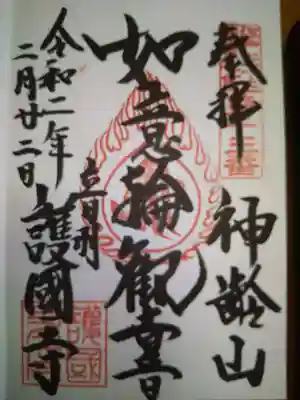 奉拝
神齢山
如意輪観世音
音羽
護國寺
令和二年
二月廿二日